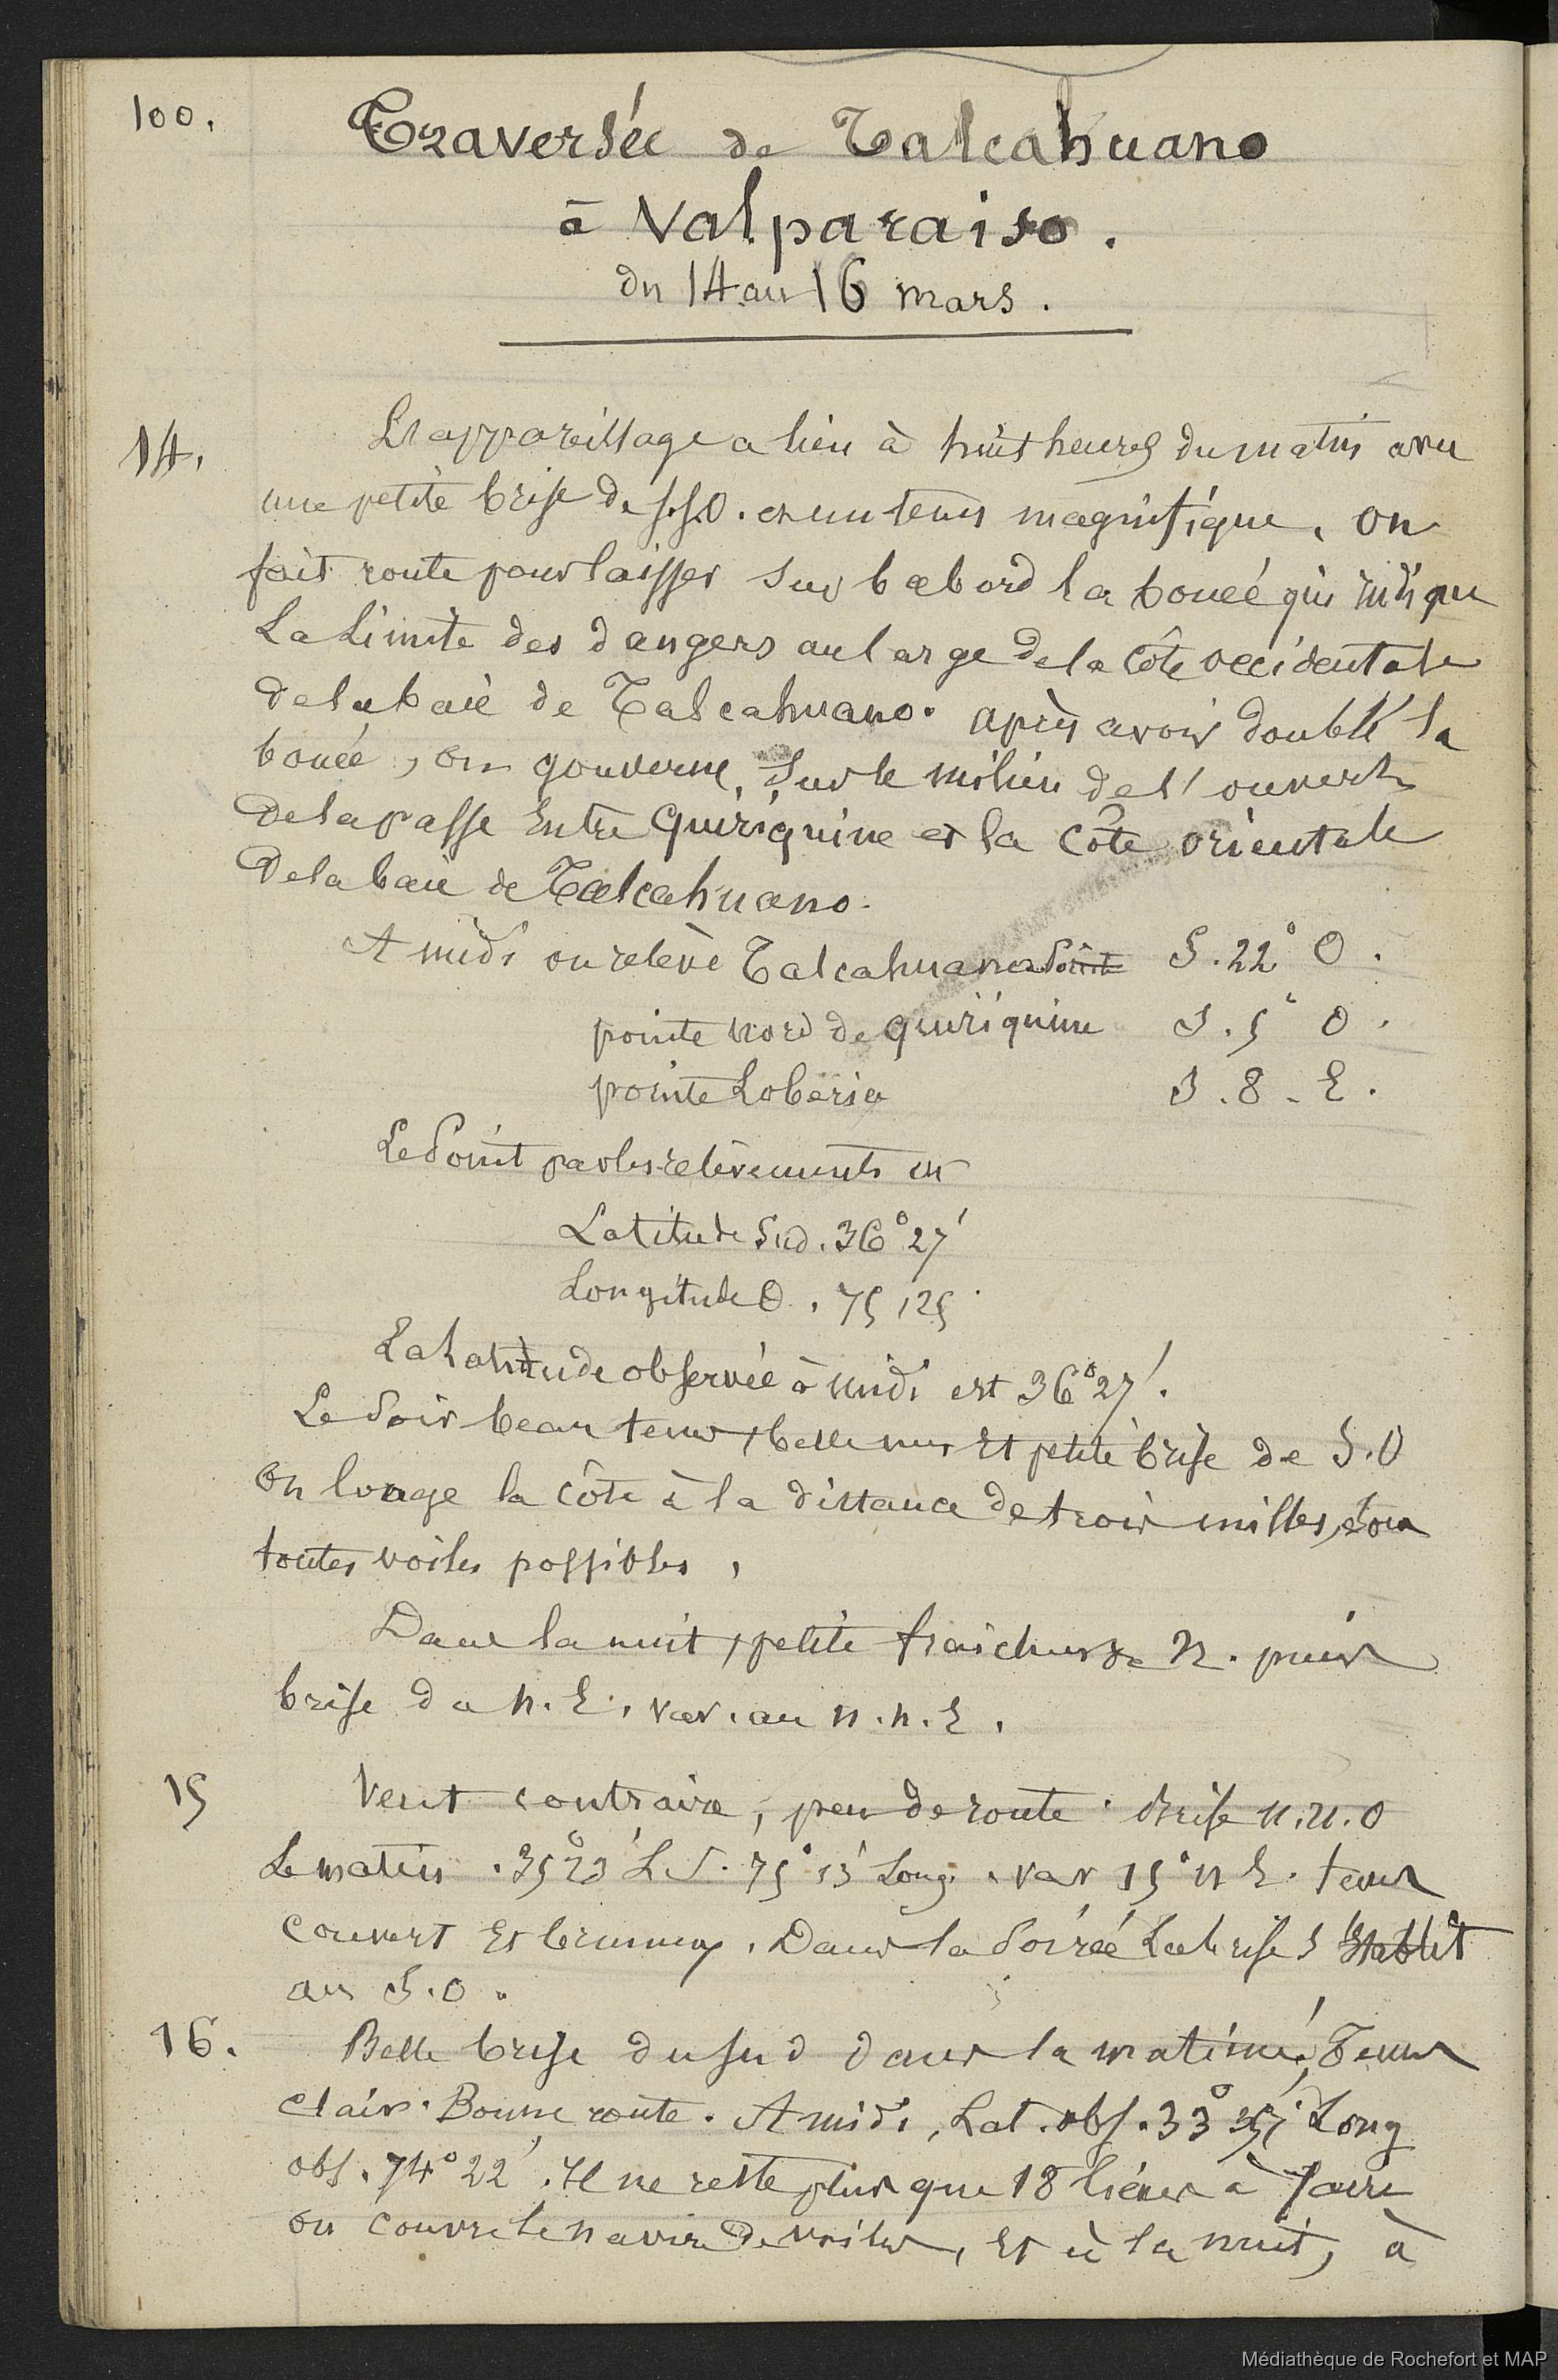 100.
Traversée de Talcahuano
à Valparaiso.
du 14 au 16 mars.
14.
L'appareillage a lieu à huit heures du matin avec
une petite brise de S.S.O. et un tems magnifique. On
fait route pour laisser sur babord la bouée qui indique
La limite des dangers au large de la côte occidentale
de la baie de Talcahuano. après avoir doublé la
bouée, on gouverne, sur le milieu de l'ouverte
De la passe Entre Quiriquine et la côte orientale
De la baie de Talcahuano.
A midi on relève Talcahuano S. 22° O.
pointe nord de quiriquine S. 5° O.
pointe Loberia S. 8. E.
Le Point par les relèvements est
Latitude Sud. 36° 27'
Longitude O. 75, 25
La Latitude observée à midi est 36° 27'.
Le Soir beau tems, belle mer Et petite brise de S.O
On longe la côte à la distance de trois milles, sous
toutes voiles possibles,
Dans la nuit, petite fraicheur de N. puis
brise du N. E. var. au N. N. E.
15
Vent contraire, peu de route. Brise N.N.O
Le matin. 35° 23' L S. 75° 13' Long. var 15° N E. tems
couvert Et brumeux. Dans la Soirée La brise s'Etablit
au S.O.
16.
Belle brise du Sud dans la matinée, Tems
clair. Bonne route. A midi, Lat. obs. 33° Long
obs. 74° 22'. Il ne reste plus que 18 lieues à faire
on couvre le navire de voiles, Et à la nuit, à
Médiathèque de Rochefort et MAP